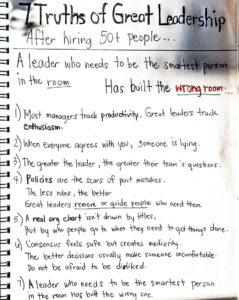 7 Truths of Great Leadership
After hiring 50+ people...
A leader who needs to be the smartest person
in the room
Has built the wrong room...
1) Most managers track productivity. Great leaders track
enthusiasm.
2) When everyone agrees with you, someone is lying.
3) The greater the leader, the greater their team's questions.
4) Policies are the scars of past mistakes.
The less rules, the better
Great leaders remove or guide people who need them.
5) A real org chart isn't drawn by titles,
But by who people go to when they need to get things done.
6) Consensus feels safe but creates mediocrity.
The better decisions usually make someone uncomfortable.
Do not be afraid to be disliked.
7) A leader who needs to be the smartest person
in the room has built the wrong one.